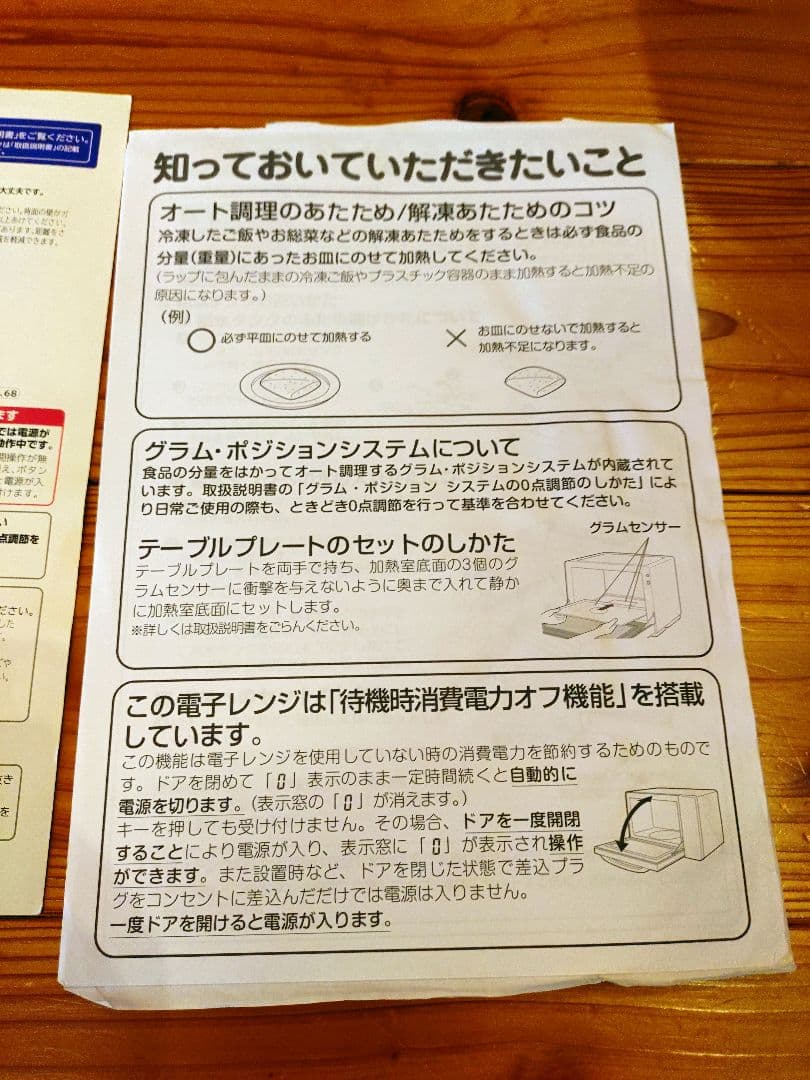 明書」をご覧ください。
は「取扱説明書」の記載
大丈夫です。
ださい。背面の壁がガ
とあけてください。
があります。距離をさ
を軽減できます。
.68)
ます
では電源が
動作中です。
間操作が無
え、ボタン
と電源が入
けます。
い
点調節を
ださい。
した
や
い。
を
知っておいていただきたいこと
オート調理のあたため/解凍あたためのコツ
冷凍したご飯やお総菜などの解凍あたためをするときは必ず食品の
分量(重量)にあったお皿にのせて加熱してください。
(ラップに包んだままの冷凍ご飯やプラスチック容器のまま加熱すると加熱不足の
原因になります。)
(例)
○ 必ず平皿にのせて加熱する
× お皿にのせないで加熱すると
加熱不足になります。
グラム・ポジションシステムについて
食品の分量をはかってオート調理するグラム・ポジションシステムが内蔵されて
います。取扱説明書の「グラム・ポジション システムの0点調節のしかた」によ
り日常ご使用の際も、ときどき0点調節を行って基準を合わせてください。
グラムセンサー
テーブルプレートのセットのしかた
テーブルプレートを両手で持ち、加熱室底面の3個のグ
ラムセンサーに衝撃を与えないように奥まで入れて静か
に加熱室底面にセットします。
※詳しくは取扱説明書をごらんください。
この電子レンジは「待機時消費電力オフ機能」を搭載
しています。
この機能は電子レンジを使用していない時の消費電力を節約するためのもので
す。ドアを閉めて「0」表示のまま一定時間続くと自動的に
電源を切ります。(表示窓の「0」が消えます。)
キーを押しても受け付けません。その場合、ドアを一度開閉
することにより電源が入り、表示窓に「0」が表示され操作
ができます。また設置時など、ドアを閉じた状態で差込プラ
グをコンセントに差込んだだけでは電源は入りません。
一度ドアを開けると電源が入ります。